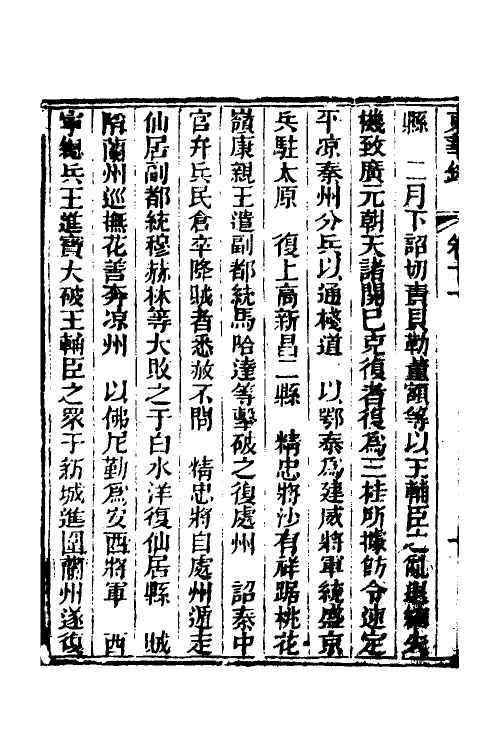 東華錄 卷十一
縣　二月下詔切責貝勒董額等以王輔臣之亂遷延失
機致廣元朝天諸關已克復者復為三桂所據飭令速定
平凉秦州分兵以通棧道　以鄂泰為建威將軍統盛京
兵駐太原　復上高新昌二縣　精忠將沙有祥踞桃花
嶺康親王遣副都統馬哈達等擊破之復處州　詔秦中
官弁兵民倉卒降賊者悉赦不問　精忠將自處州遁走
仙居副都統穆赫林等大敗之于白水洋復仙居縣　賊
陷蘭州巡撫花善奔凉州　以佛尼勒為安西將軍　西
寧總兵王進寶大破王輔臣之眾于新城進圍蘭州遂復